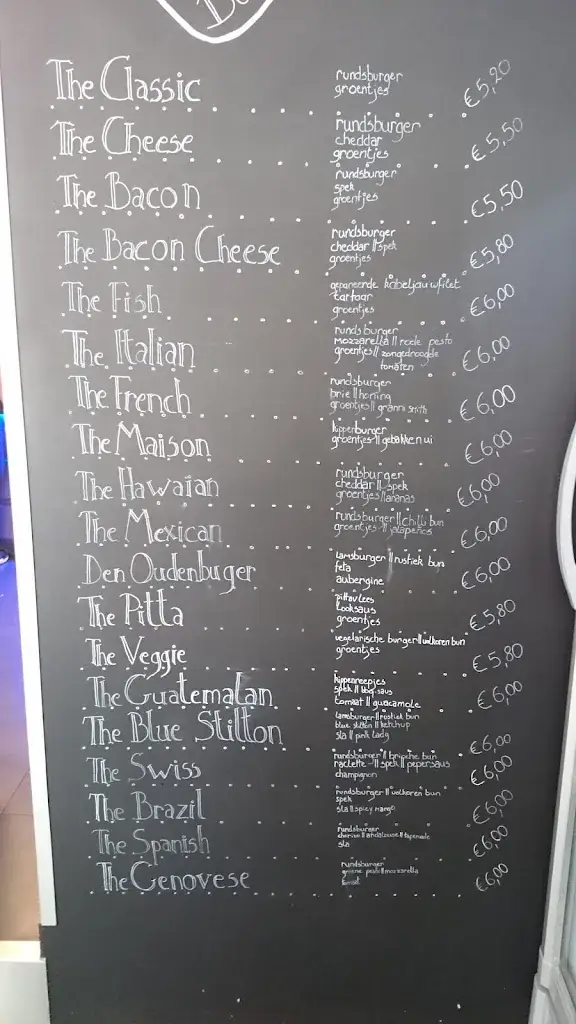 The Classic
rundsburger
groentjes
€5,20
The Cheese
rundsburger
cheddar
groentjes
€5,50
The Bacon
rundsburger
spek
groentjes
€5,50
The Bacon Cheese
rundsburger
cheddar // spek
groentjes
€5,80
The Fish
gepaneerde kabeljauwfilet
tartaar
groentjes
€6,00
The Italian
rundsburger
mozzarella // rode pesto
groentjes // zongedroogde
tomaten
€6,00
The French
rundsburger
brie // honing
groentjes // granni smith
€6,00
The Maison
kippenburger
groentjes // gebakken ui
€6,00
The Hawaian
rundsburger
cheddar // spek
groentjes // ananas
€6,00
The Mexican
rundsburger // chilli bun
groentjes // jalapeños
€6,00
Den Oudenburger
lamsburger // rustiek bun
feta
aubergine
€6,00
The Pitta
pittavlees
looksaus
groentjes
€5,80
The Veggie
vegetarische burger // volkoren bun
groentjes
€5,80
The Guatemalan
kippenreepjes
spek // bbq-saus
tomaat // guacamole
€6,00
The Blue Stilton
lamsburger // rustiek bun
blue stilton // ketchup
sla // pink lady
€6,00
The Swiss
rundsburger // brioche bun
raclette // spek // pepersaus
champignon
€6,00
The Brazil
rundsburger // volkoren bun
spek
sla // spicy mango
€6,00
The Spanish
rundsburger
chorizo // andalouse // tapenade
sla
€6,00
The Genovese
rundsburger
groene pesto // mozzarella
€6,00